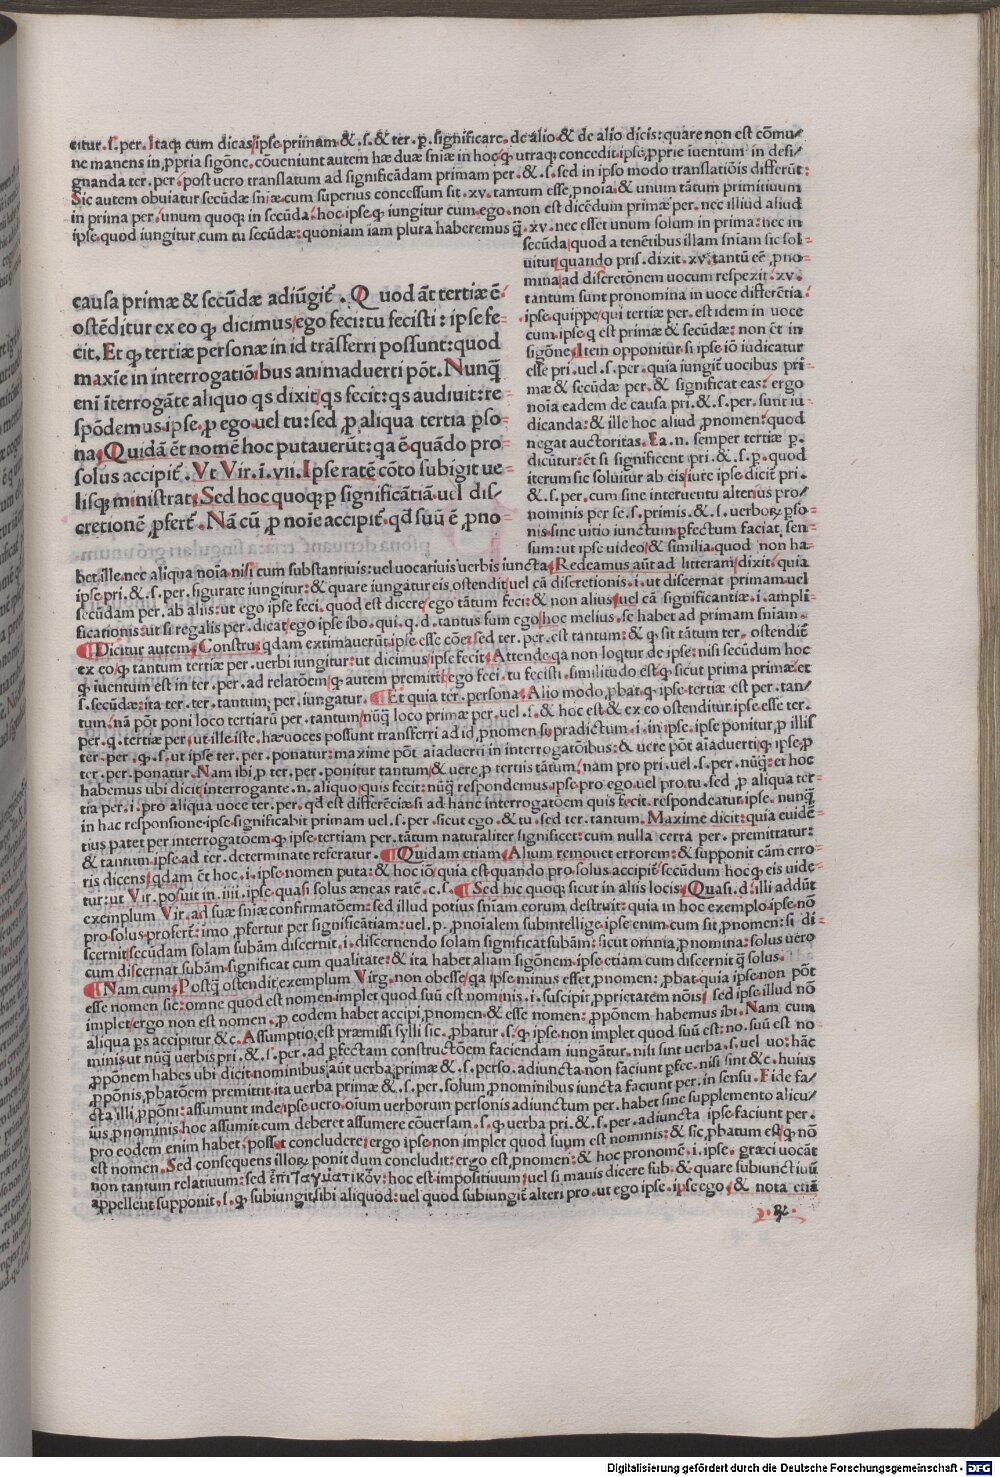 citur .ſ. per. Itaq; cum dicas ipſe primam &.ſ.& ter. p̱. ſignificare. de alio & de alio dicis: quare non eſt cōmu/
ne manens in ꝓpria ſigōne. cōueniunt autem hæ duæ ſniæ in hoc ꝙ utraq; concedit ipſe ꝓprie īuentum in deſi/
gnanda ter. per. poſt uero translatum ad ſignificādam primam per. &.ſ. ſed in ipſo modo translatiōis differūt:
Sic autem obuiatur ſecūdæ ſniæ cum ſuperius conceſſum ſit .xv. tantum eſſe ꝓnoīa & unum tātum primitiuum
in prima per. unum quoq; in ſecūda. hoc ipſe ꝙ iungitur cum ego. non eſt dicēdum primæ per. nec illiud aliud
ipſe quod iungitur cum tu ſecūdæ: quoniam iam plura haberemus q̄ .xv. nec eſſet unum ſolum in prima: nec in
ſecūda quod a tenētibus illam ſniam ſic ſol-
uitur quando priſ. dixit .xv. tantū eē ꝓno-
mina ad diſcretōnem uocum reſpexit .xv.
tantum ſunt pronomina in uoce differētia.
ipſe quippe qui tertiæ per. eſt idem in uoce
cum ipſe q eſt primæ & ſecūdæ: non ēt in
ſigōne. Item opponitur ſi ipſe iō iudicatur
eſſe pri. uel .ſ. per. quia iungiť uocibus pri
mæ & ſecūdæ per. & ſignificat eas: ergo
noīa eadem de cauſa pri. &.ſ. per. ſunt iu-
dicanda: & ille hoc aliud ꝓnomen: quod
negat auctoritas. Ea .n. ſemper tertiæ p̱.
dicūtur: ēt ſi ſignificent pri. &.ſ. p̱. quod
iterum ſic ſoluitur ab eis iure ipſe diciť pri.
&.ſ. per. cum ſine interuentu alterius pro/
nominis per ſe .ſ. primis. &.ſ. uerboꝝ p̱ſo-
nis ſine uitio iunctum p̱fectum faciat ſen-
ſum: ut ipſe uideo & ſimilia. quod non ha-
cauſa primæ & ſecūdæ adiūgiť. Quod āt tertiæ ē
oſtēditur ex eo ꝙ dicimus ego feci: tu feciſti: ipſe fe-
cit. Et ꝙ tertiæ perſonæ in id trāſferri poſſunt: quod
maxīe in interrogatiōibus animaduerti pōt. Nunq̄
enī īterrogāte aliquo qs dixit qs fecit: qs audiuit: re-
ſpōdemus ipſe ꝓ ego uel tu: ſed ꝓ aliqua tertia p̱ſo-
na. Quidā ēt nomē hoc putauerūt: qa ē quādo pro
ſolus accipiť. Vt Vir. i. vii. Ipſe ratē cōto ſubigit ue-
liſq; miniſtrat. Sed hoc quoq; p̱ ſignificātiā uel diſ-
cretionē ꝓferť. Nā cū ꝓ noīe accipiť. qd̄ ſuū ē ꝓno-
bet ille. nec aliqua noīa niſi cum ſubſtantiuis: uel uocatiuis uerbis iuncta. Redeamus aūt ad litteram dixit quia
ipſe pri. &.ſ. per. figurate iungitur: & quare iungatur eis oſtendit uel cā diſcretionis .i. ut diſcernat primam uel
ſecūdam per. ab aliis: ut ego ipſe feci. quod eſt dicere ego tātum feci: & non alius uel cā ſignificantiæ .i. ampli-
ficationis: ut ſi regalis per. dicat ego ipſe ibo. qui .q. d. tantus ſum ego hoc melius ſe habet ad primam ſniam.
Dicitur autem. Conſtru. qdam extimauerūt ipſe eſſe cōe: ſed ter. per. eſt tantum: & ꝙ ſit tātum ter. oſtendit
ex eo ꝙ tantum tertiæ per. uerbi iungitur: ut dicimus ipſe fecit. Attende qa non loqtur de ipſe: niſi ſecūdum hoc
ꝙ īuentum eſt in ter. per. ad relatōem ꝙ autem premittit ego feci. tu feciſti. ſimilitudo eſt ꝙ ſicut prima primæ et
ſ. ſecūdæ: ita ter. ter. tantum per. iungatur. Et quia ter. perſona. Alio modo ꝓbat ꝙ ipſe tertiæ eſt per. tan/
tum. nā pōt poni loco tertiarū per. tantum nūq̄ loco primæ per. uel .ſ. & hoc eſt & ex eo oſtenditur ipſe eſſe ter.
per. q. tertiæ per. ut ille iſte. hæ uoces poſſunt tranſferri ad id ꝓnomen ſupradictum .i. in ipſe. ipſe ponitur ꝓ illis
ter. per. ꝙ .ſ. ut ipſe ter. per. ponatur: maxime pōt aīaduerti in interrogatōibus: & uere pōt aīaduerti ꝙ ipſe ꝓ
ter. per. ponatur. Nam ibi ꝓ ter. per. ponitur tantum & uere ꝓ tertiis tātum. nam pro pri. uel .ſ. per. nūq̄: et hoc
habemus ubi dicit interrogante .n. aliquo quis fecit: nūq̄ reſpondemus ipſe pro ego uel pro tu. ſed ꝓ aliqua ter-
tia per. i. pro aliqua uoce ter. per. qd̄ eſt differēcia: ſi ad hanc interrogatōem quis fecit. reſpondeatur ipſe. nunq̄
in hac reſponſione ipſe ſignificabit primam uel .ſ. per. ſicut ego. & tu. ſed ter. tantum. Maxime dicit: quia euidē-
tius patet per interrogatōem ꝙ ipſe tertiam per. tātum naturaliter ſignificet: cum nulla certa per. premittatur:
& tantum ipſe ad ter. determinate referatur. Quidam etiam. Alium remouet errorem: & ſupponit cām erro-
ris dicens qdam ēt hoc .i. ipſe nomen puta: & hoc iō quia eſt quando pro ſolus accipiť ſecūdum hoc ꝙ eis uide-
tur: ut Vir. poſuit in .iiii. ipſe quaſi ſolus æneas ratē. c. ſ. Sed hic quoq; ſicut in aliis locis. Quaſi .d. illi addūt
exemplum Vir. ad ſuæ ſniæ confirmatōem: ſed illud potius ſniam eorum deſtruit: quia in hoc exemplo ipſe nō
pro ſolus proferť: imo ꝓfertur per ſignificātiam: uel .p. ꝓnoīalem ſubintellige ipſe enim cum ſit ꝓnomen: ſi di-
ſcernit ſecūdam ſolam ſubām diſcernit .i. diſcernendo ſolam ſignificat ſubām: ſicut omnia ꝓnomina: ſolus uero
cum diſcernat ſubām ſignificat cum qualitate: & ita habet aliam ſigōnem. ipſe etiam cum diſcernit q̄ ſolus.
Nam cum. Poſtq̄ oſtendit exemplum Virg. non obeſſe qa ipſe minus eſſet ꝓnomen: ꝓbat quia ipſe non pōt
eſſe nomen ſic: omne quod eſt nomen implet quod ſuū eſt nominis .i. ſuſcipit ꝓprietatem nōis ſed ipſe illud nō
implet ergo non eſt nomen. ꝓ eodem habet accipi ꝓnomen & eſſe nomen: ꝓpōnem habemus ibi. Nam cum
aliqua p̱s accipitur &c. Aſſumptio eſt præmiſſi ſylli ſic. ꝓbatur .ſ. ꝙ ipſe non implet quod ſuū eſt: no. ſuū eſt no
minis ut nūq̄ uerbis pri. &.ſ. per. ad p̱fectam conſtructōem faciendam iungātur. niſi ſint uerba .ſ. uel uo: hāc
ꝓpōnem habes ubi dicit nominibus aūt uerba primæ &.ſ. perſo. adiuncta non faciunt p̱fec. niſi ſint &c. huius
ꝓpōnis ꝓbatōem premittit ita uerba primæ &.ſ. per. ſolum ꝓnominibus iuncta faciunt per. in ſenſu. Eide fa/
cta illi ꝓpōni: aſſumunt inde ipſe uero. oīum uerborum perſonis adiunctum per. habet ſine ſupplemento alicu/
ius ꝓnominis. hoc aſſumit cum deberet aſſumere cōuerſam .ſ. ꝙ uerba pri. &.ſ. per. adiuncta ipſe faciunt per.
pro eodem enim habet. poſſet concludere ergo ipſe non implet quod ſuum eſt nominis: & ſic ꝓbatum eſt ꝙ nō
eſt nomen. Sed conſequens illoꝝ ponit dum concludit: ergo eſt ꝓnomen: & hoc pronomē .i. ipſe. græci uocāt
non tantum relatiuum: ſed ἐπιταγματικὸν: hoc eſt impoſitiuum: uel ſi mauis dicere ſub. & quare ſubiunctiuū
appellent ſupponit .ſ. ꝙ ſubiungit ſibi aliquod: uel quod ſubiungiť alteri pro. ut ego ipſe. ipſe ego. & nota etiā
Digitalisierung gefördert durch die Deutsche Forschungsgemeinschaft - DFG